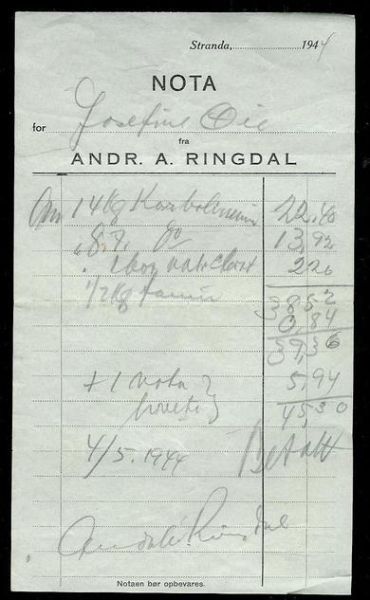 Stranda, 1944
NOTA
for Josefine Oie
fra
ANDR. A. RINGDAL
14 kg Karbolineum 22,40
8,7 do 13,92
1 2,20
1/2 kg 38,52
0,84
39,36
+ 1 nota 5,94
45,30
4/5. 1944 Betalt
Andr. A. Ringdal
Notaen bør opbevares.